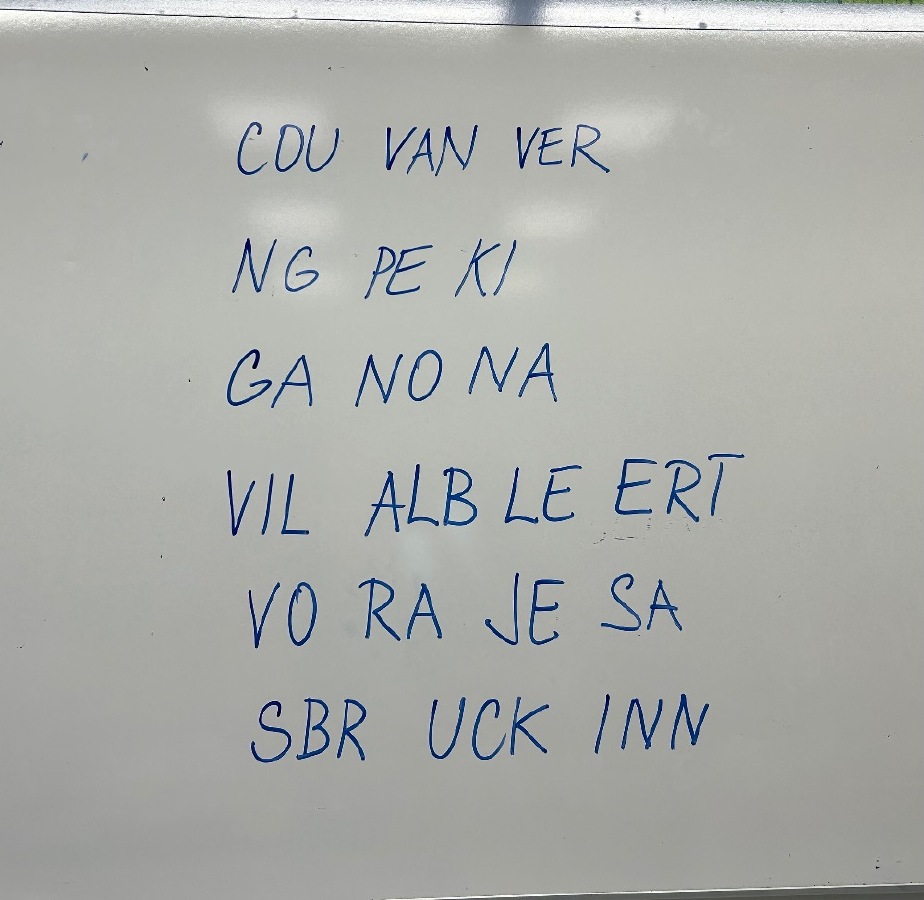 COU VAN VER
NG PE KI
GA NO NA
VIL ALB LE ERT
VO RA JE SA
SBR UCK INN